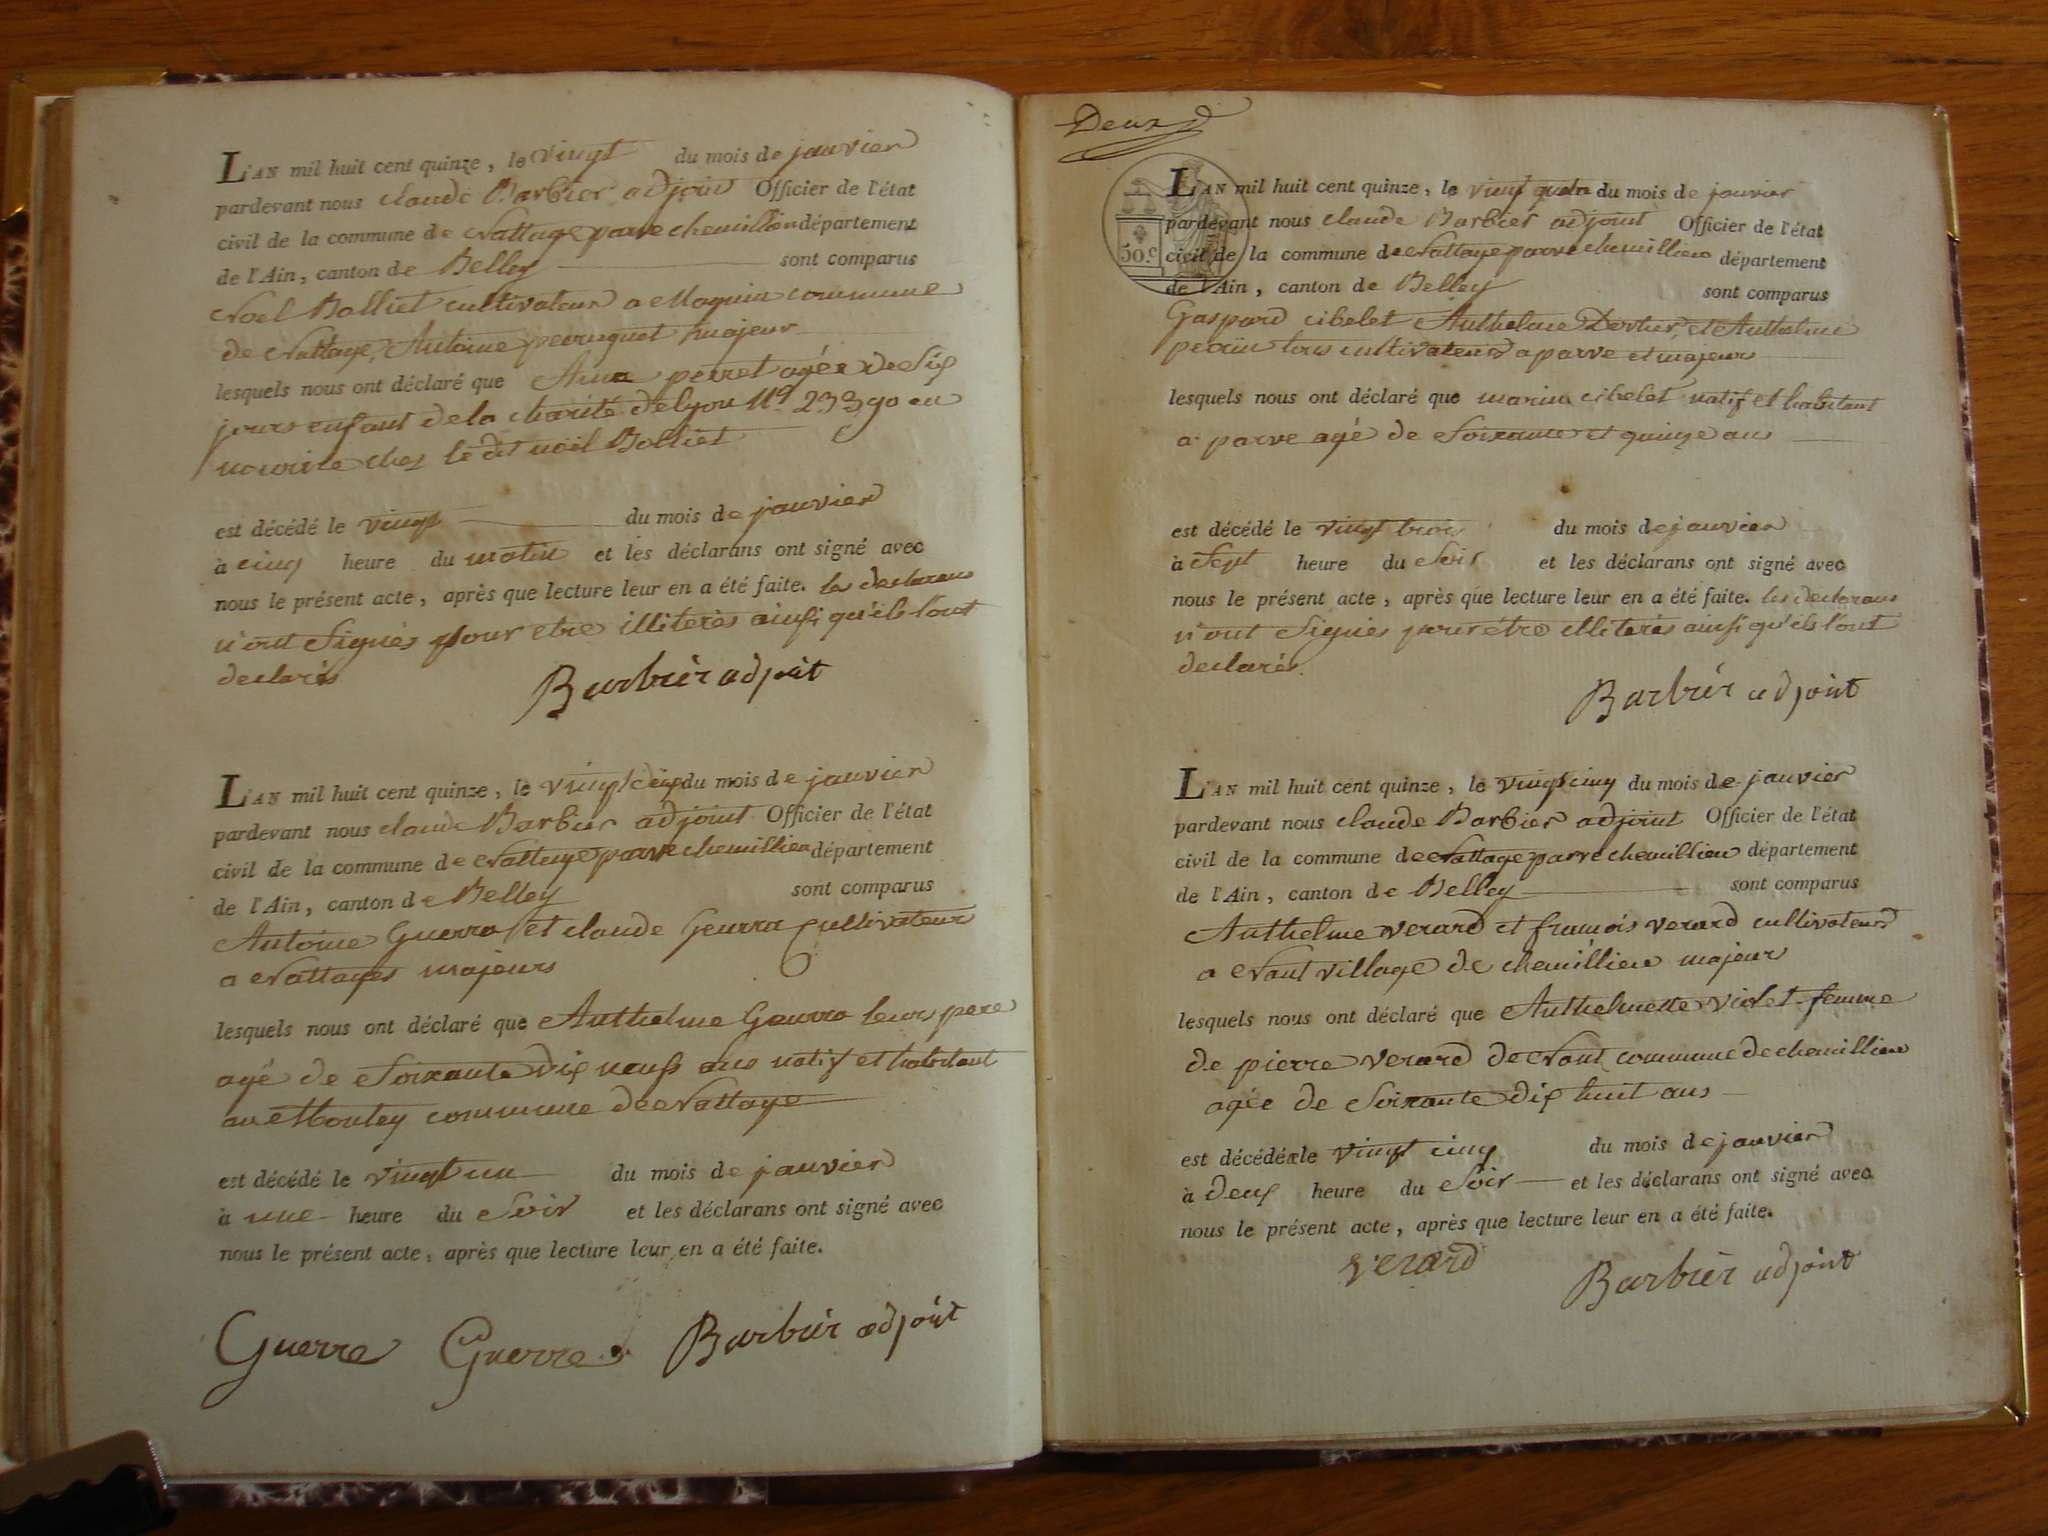 L'AN mil huit cent quinze, le vingt du mois de janvier
pardevant nous claude Barbier adjoint Officier de l'état
civil de la commune de Nattage parve chemillieu département
de l'Ain, canton de Belley sont comparus
Noel Bolliet cultivateur a commune
de Nattage, Antoine majeur
lesquels nous ont déclaré que perret agée de Six
jours enfant de la charité de lyon Nº 23390 en
nourice chez le dit noël Bolliet
est décédé le vingt du mois de janvier
à cinq heure du matin et les déclarans ont signé avec
nous le présent acte, après que lecture leur en a été faite. les declarans
n'ont Signés pour etre illiterés ainsi qu'ils l'ont
declarés
Barbier adjoit
L'AN mil huit cent quinze, le du mois de janvier
pardevant nous claude Barbier adjoint Officier de l'état
civil de la commune de Nattage parve chemillieu département
de l'Ain, canton de Belley sont comparus
Antoine Guerra et claude Geurra Cultivateur
a Nattages majeurs
lesquels nous ont déclaré que Anthelme Geurra leurs pere
agé de Soixante dix neuf ans natif et habitant
au Montey commune de Nattage
est décédé le vingt un du mois de janvier
à une heure du Soir et les déclarans ont signé avec
nous le présent acte, après que lecture leur en a été faite.
Guerre Guerre Barbier adjoit
Deux
50.c
L'AN mil huit cent quinze, le vingt quatre du mois de janvier
pardevant nous claude Barbier adjoint Officier de l'état
civil de la commune de Nattage parve chemillieu département
de l'Ain, canton de Belley sont comparus
Gaspard cibelet Anthelme et Anthelme
perrin tous cultivateurs a parve et majeurs
lesquels nous ont déclaré que marin cibelet natif et habitant
a parve agé de Soixante et quinze ans
est décédé le vingt trois du mois de janvier
à Sept heure du Soir et les déclarans ont signé avec
nous le présent acte, après que lecture leur en a été faite. les declarans
n'ont Signés pour être illiterés ainsi qu'ils l'ont
declarés.
Barbier adjoit
L'AN mil huit cent quinze, le vingt cinq du mois de janvier
pardevant nous claude Barbier adjoint Officier de l'état
civil de la commune de Nattage parve chemillieu département
de l'Ain, canton de Belley sont comparus
Anthelme verard et francois verard cultivateurs
a Nant village de chemillieu majeurs
lesquels nous ont déclaré que Anthelmette violet femme
de pierre verard de Nant commune de chemillieu
agée de Soixante dix huit ans
est décédée le vingt cinq du mois de janvier
à deux heure du Soir et les déclarans ont signé avec
nous le présent acte, après que lecture leur en a été faite.
verard Barbier adjoit